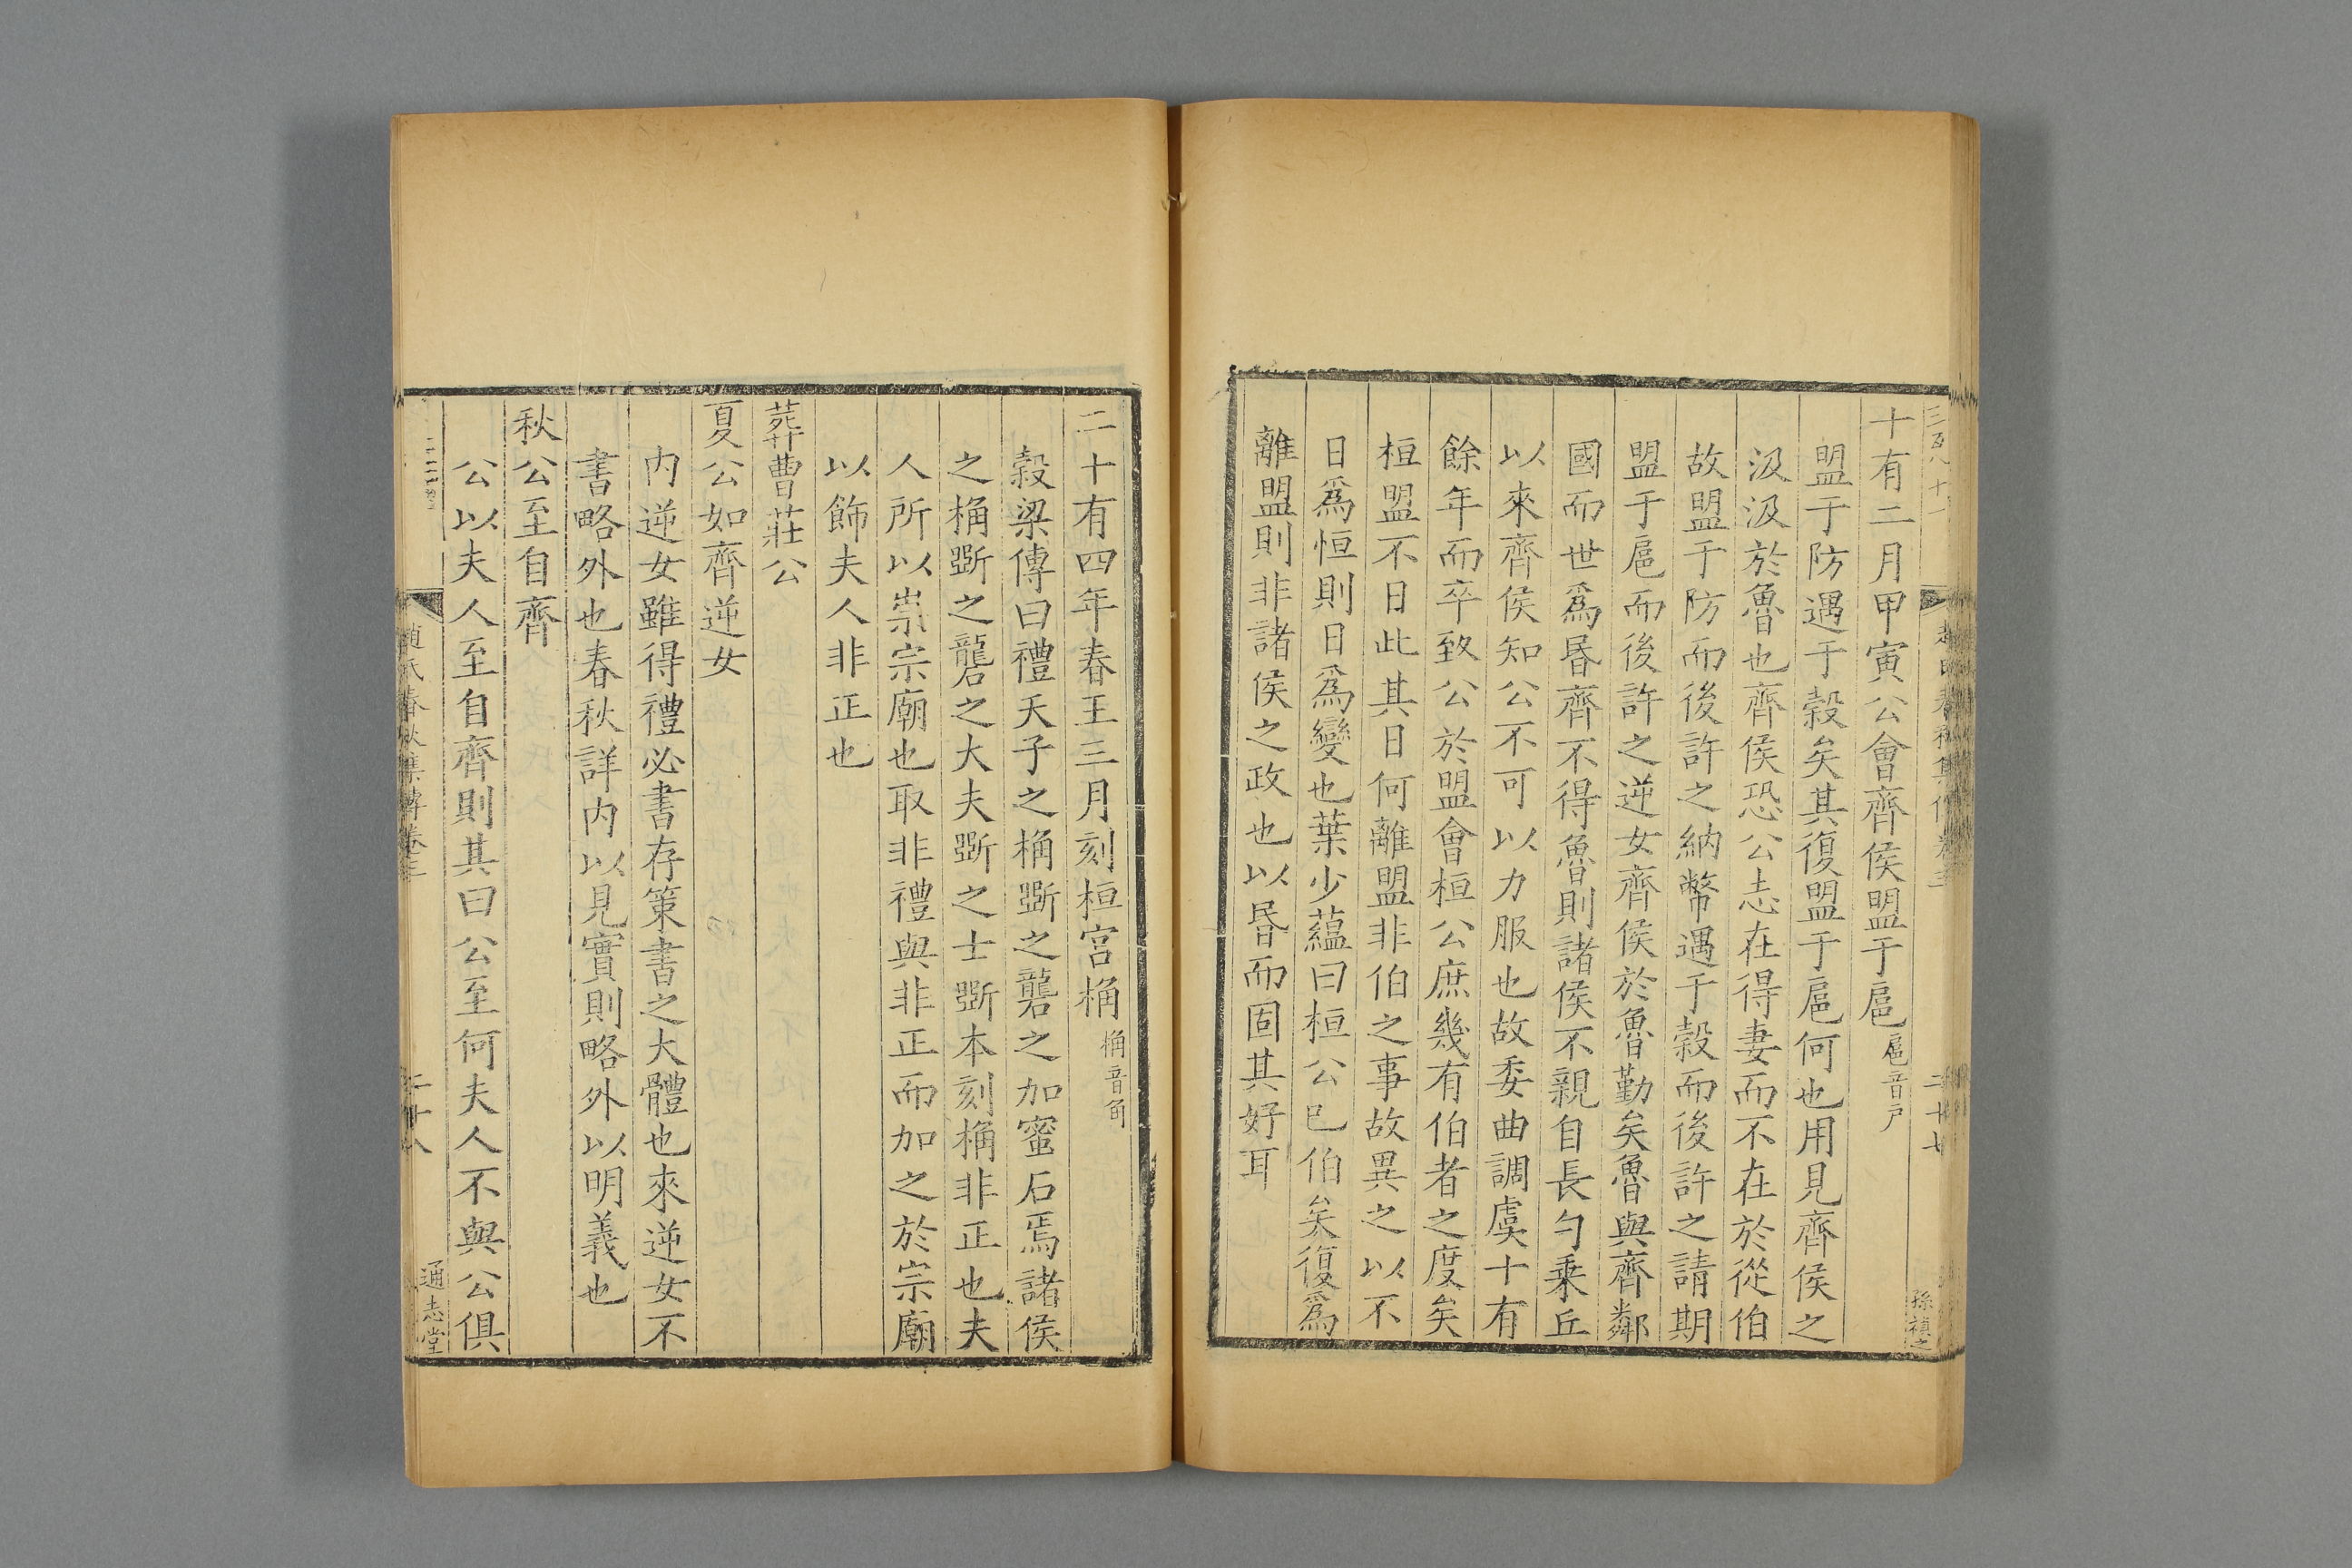 十有二月甲寅公會齊侯盟于扈扈音戶
盟于防遇于穀矣其復盟于扈何也用見齊侯之
汲汲於魯也齊侯恐公志在得妻而不在於從伯
故盟于防而後許之納幣遇于穀而後許之請期
盟于扈而後許之逆女齊侯於魯勤矣魯與齊鄰
國而世爲昏齊不得魯則諸侯不親自長勺乘丘
以來齊侯知公不可以力服也故委曲調虞十有
餘年而卒致公於盟會桓公庶幾有伯者之度矣
桓盟不日此其日何離盟非伯之事故異之以不
日爲恒則日爲變也葉少蘊曰桓公巳伯矣復爲
離盟則非諸侯之政也以昏而固其好耳
二十七
孫禎之
二十有四年春王三月刻桓宫桷桷音角
榖梁傳曰禮天子之桷斲之礱之加蜜石焉諸侯
之桷斲之礱之大夫斲之士斲本刻桷非正也夫
人所以崇宗廟也取非禮與非正而加之於宗廟
以飾夫人非正也
葬曹莊公
夏公如齊逆女
内逆女雖得禮必書存策書之大體也來逆女不
書略外也春秋詳内以見實則略外以明義也
秋公至自齊
公以夫人至自齊則其曰公至何夫人不與公俱
趙氏春秋集傳卷三
二十八
通志堂